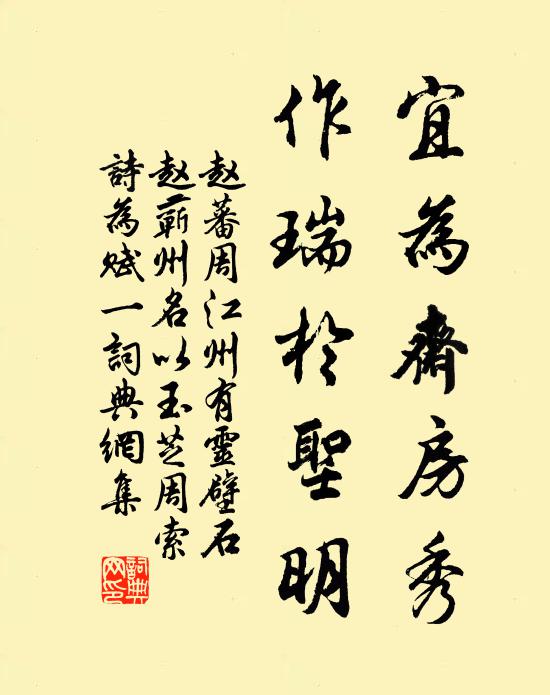 宜為齋房秀
作瑞於聖明
赵蕃周江州有靈壁石
赵蘄州名以玉芝周索
詩為赋一詞典網集
詞典网印